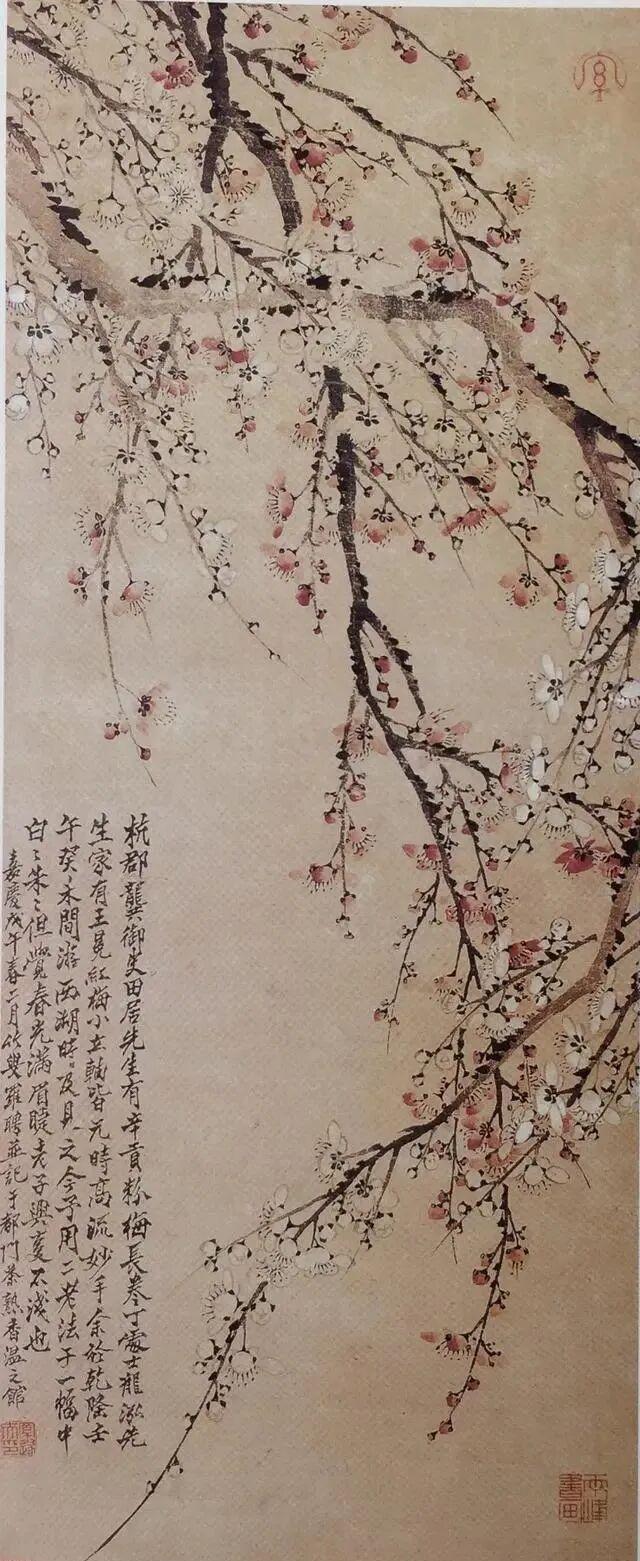 杭郡龔御史田居先生有辛貢粉梅長卷丁處士龍泓先
生家有王冕紅梅小立軸皆元時高流妙手余於乾隆壬
午癸未間游西湖時及見之今予用二老法于一幅中
白々朱々但覺春光滿眉睫老子興復不淺也
嘉慶戊午春二月竹叟羅聘並記于都門茶熟香溫之館
兩峰
書畫